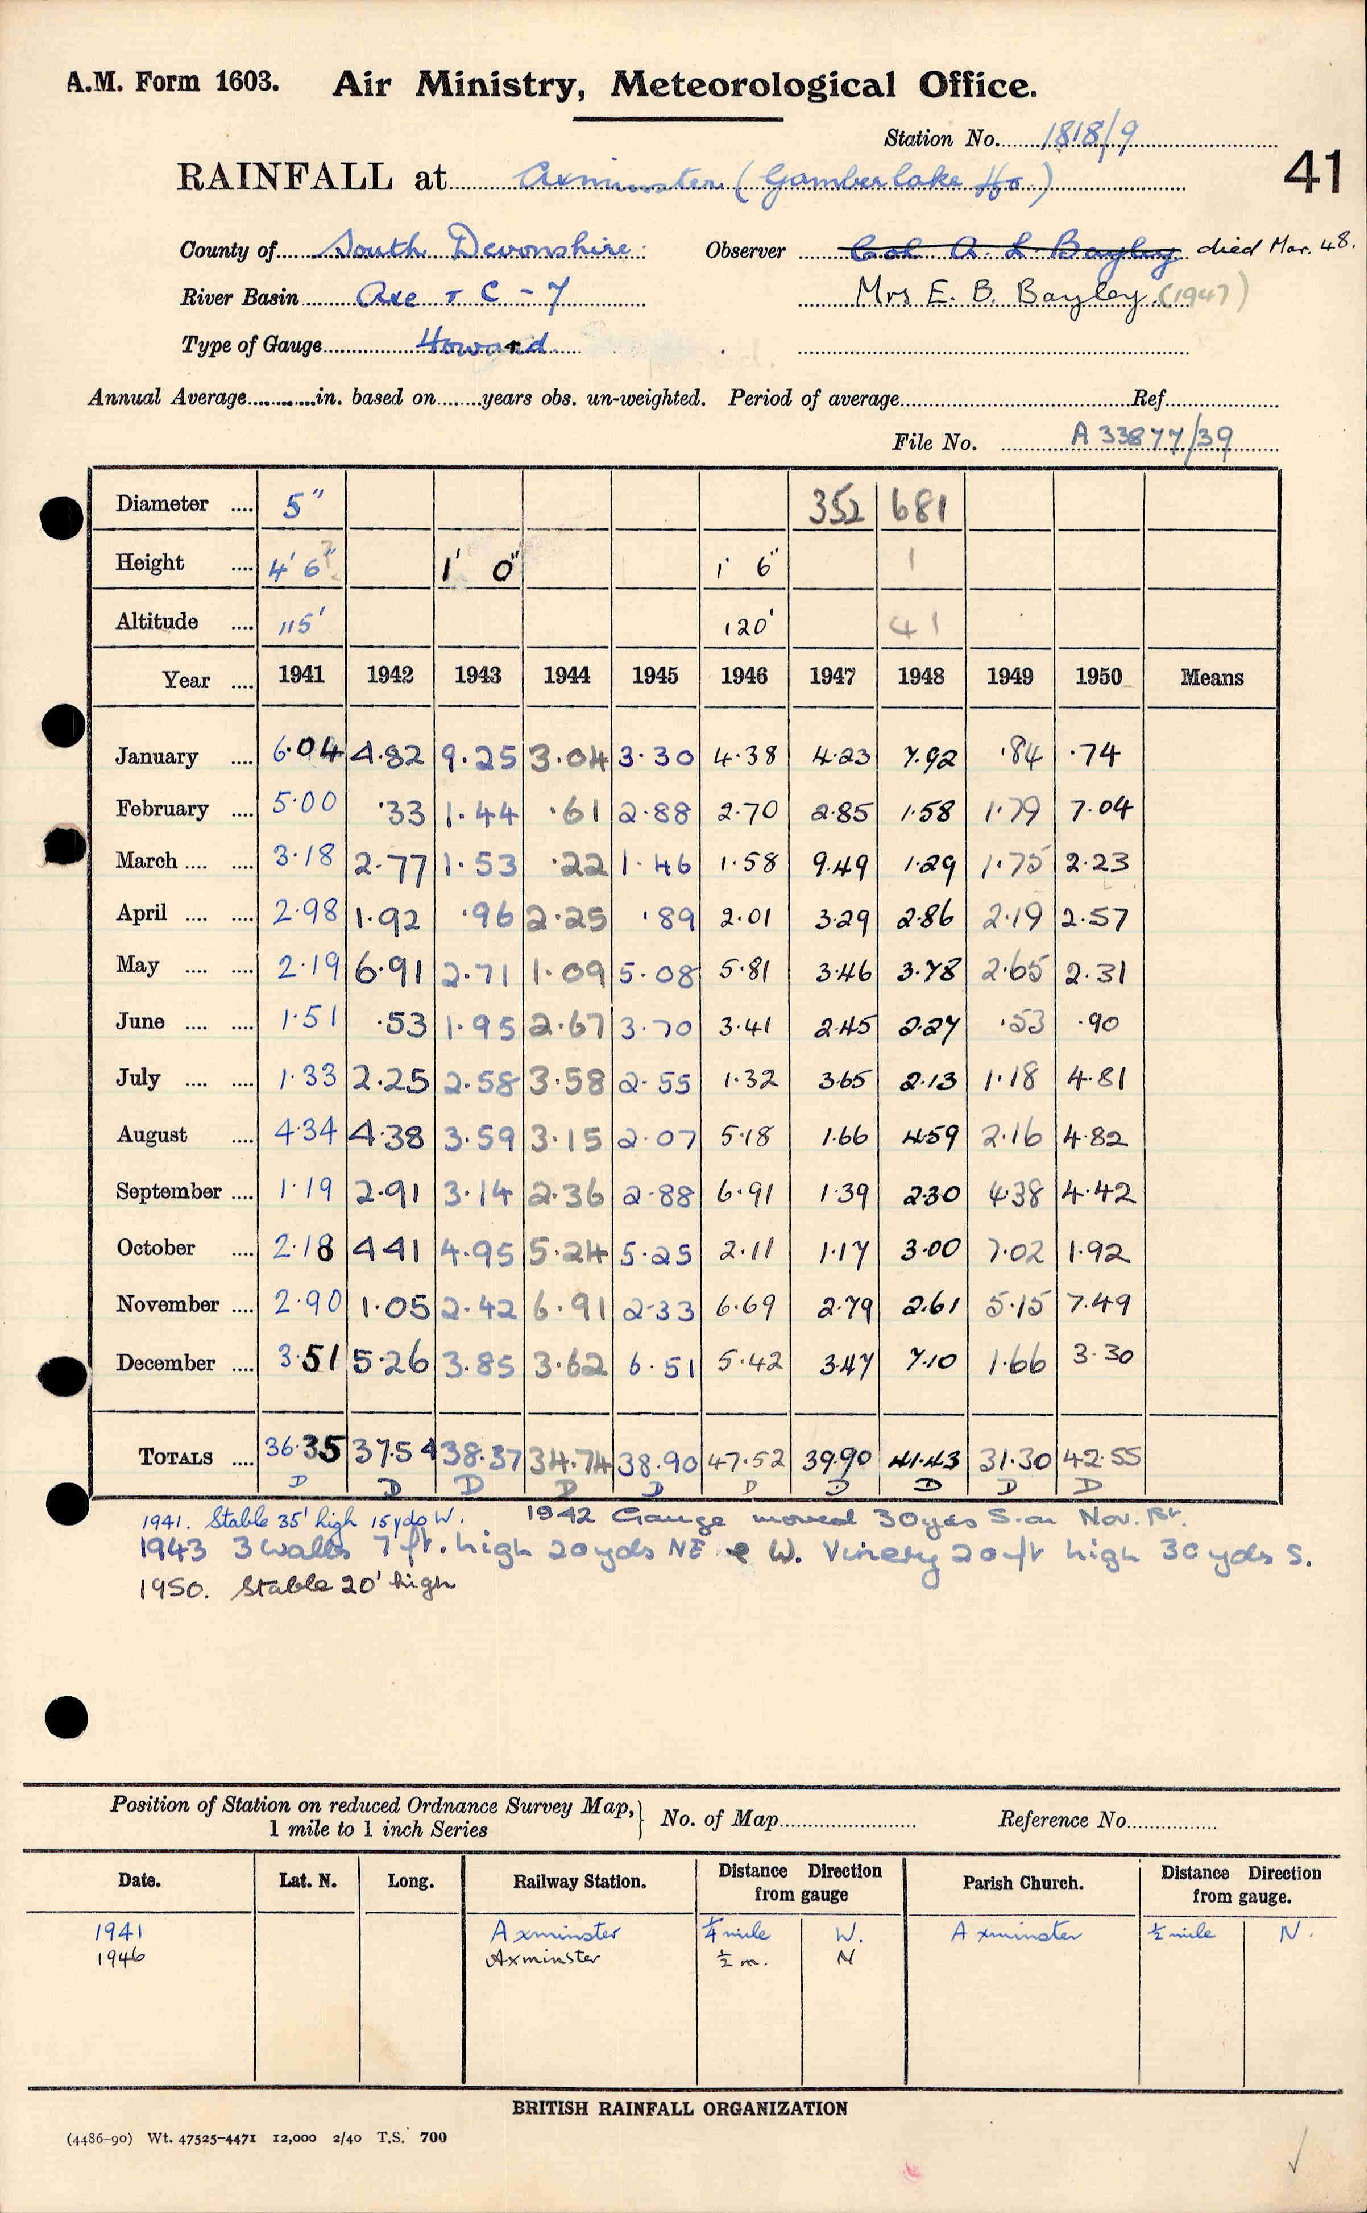 A.M. Form 1603. Air Ministry, Meteorological Office.
Station No. 1818/9
41
RAINFALL at Axminster (Gamberlake Ho.)
County of South Devonshire. Observer Col A. L. Bayley died Mar. 48.
River Basin Axe + C - 7 Mrs E. B. Bayley (1947)
Type of Gauge Howard
Annual Average in. based on years obs. un-weighted. Period of average Ref
File No. A 33877/39
Diameter 5" 352 681
Height 4' 6"? 1' 0" 1' 6" 1
Altitude 115' 120' 41
Year 1941 1942 1943 1944 1945 1946 1947 1948 1949 1950 Means
January 6.04 4.82 9.25 3.04 3.30 4.38 4.23 7.92 .84 .74
February 5.00 .33 1.44 .61 2.88 2.70 2.85 1.58 1.79 7.04
March 3.18 2.77 1.53 .22 1.46 1.58 9.49 1.29 1.75 2.23
April 2.98 1.92 .96 2.25 .89 2.01 3.29 2.86 2.19 2.57
May 2.19 6.91 2.71 1.09 5.08 5.81 3.46 3.78 2.65 2.31
June 1.51 .53 1.95 2.67 3.70 3.41 2.45 2.27 .53 .90
July 1.33 2.25 2.58 3.58 2.55 1.32 3.65 2.13 1.18 4.81
August 4.34 4.38 3.59 3.15 2.07 5.18 1.66 4.59 2.16 4.82
September 1.19 2.91 3.14 2.36 2.88 6.91 1.39 2.30 4.38 4.42
October 2.18 4.41 4.95 5.24 5.25 2.11 1.17 3.00 7.02 1.92
November 2.90 1.05 2.42 6.91 2.33 6.69 2.79 2.61 5.15 7.49
December 3.51 5.26 3.85 3.62 6.51 5.42 3.47 7.10 1.66 3.30
TOTALS 36.35 37.54 38.37 34.74 38.90 47.52 39.90 41.43 31.30 42.55
D D D D D D D D D D
1941. Stable 35' high 15 yds W. 1942 Gauge moved 30 yds S. on Nov. 1st.
1943 3 walls 7 ft. high 20 yds NE & W. Vinery 20 ft high 30 yds S.
1950. Stable 20' high
Position of Station on reduced Ordnance Survey Map, 1 mile to 1 inch Series } No. of Map Reference No.
Date. Lat. N. Long. Railway Station. Distance Direction from gauge Parish Church. Distance Direction from gauge.
1941 Axminster ¼ mile W. Axminster ½ mile N.
1946 Axminster ½ m. N
BRITISH RAINFALL ORGANIZATION
(4486-90) Wt. 47525-4471 12,000 2/40 T.S. 700